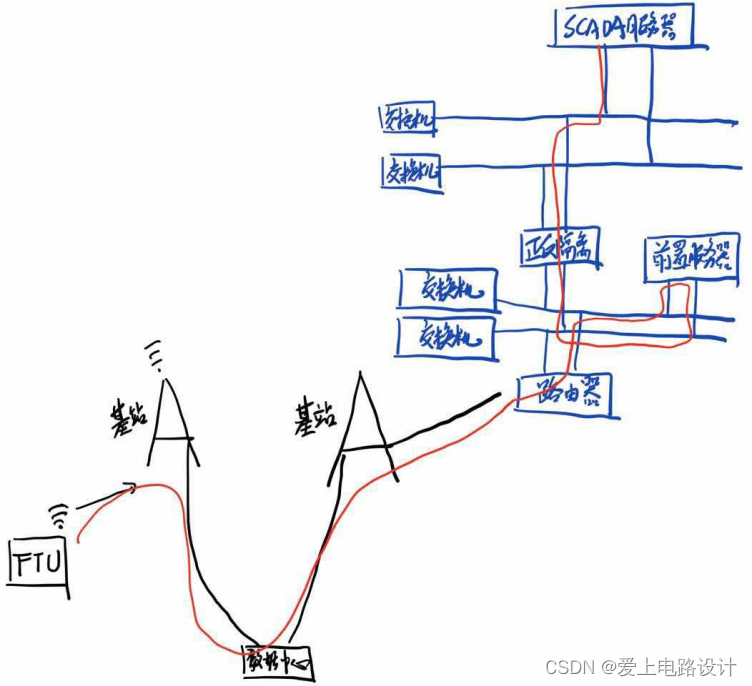 SCADA服务器
交换机
交换机
正反隔离
前置服务器
交换机
交换机
路由器
基站
基站
FTU
数据中心
CSDN @爱上电路设计